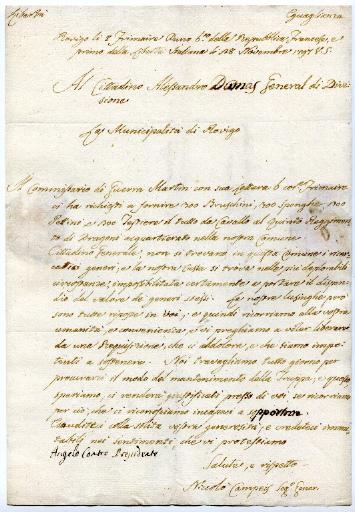 Libertà Eguaglianza
Rovigo li 8 Frimaire Anno 6.to della Repubblica Francese, e
primo della Libertà Italiana li 28 Novembre 1797 V.S.
Al Cittadino Alessandro Dumas General di Divi
sione
La Municipalità di Rovigo
Il Commissario di Guerra Martin con sua Lettera 6 cor.te Frimaire
ci ha richiesti a fornire 300 Bruschini, 300 sponghe, 300
Pettini e 300 Testiere il tutto da Cavallo al Quinto Reggimento
di Dragoni acquartierato nella nostra Comune
Cittadino Generale, non si trovano in questa Comune i ricer
cati generi, e la nostra Cassa si trova nelle più deplorabili
circostanze, impossibilitata certamente a portare il dispen
dio del valore de generi stessi. Le nostre lusinghe
sono tutte riposte in Voi, e quindi ricorriamo alla vostra
umanità, e convenienza, e vi preghiamo a voler liberarci
da una Requisizione che ci addolora, e che siamo impo
tenti a sostenere. Noi travagliamo tutto giorno per
procurarci il modo del mantenimento della Truppa, e questo
speriamo, ci renderà giustificati presso di voi se ricorriamo
per ciò, che ci riconosciamo incapaci a supportare
Esauditeci colla solita vostra generosità, e credeteci immu
tabili nei sentimenti che vi professiamo
Angelo Presidente
Salute, e rispetto
Nicolò Seg.o Gener.